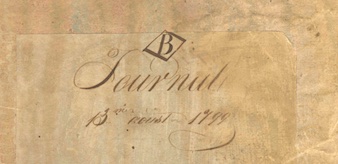 B
Journal
13 aoust 1799